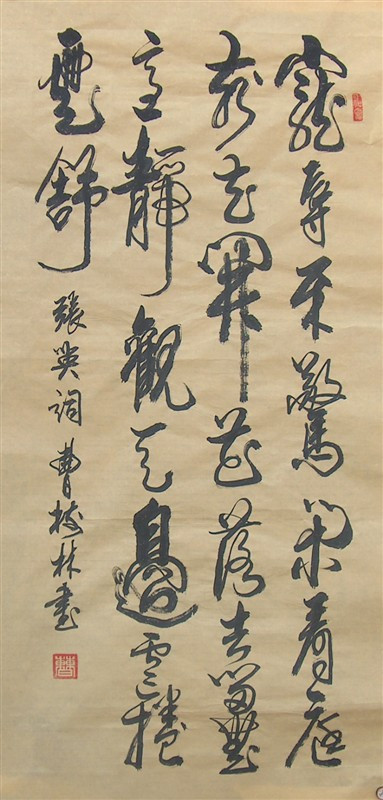 寵辱不驚閑看庭
前花開花落去留無
意靜觀天邊雲捲
雲舒
張英詞 曹林書